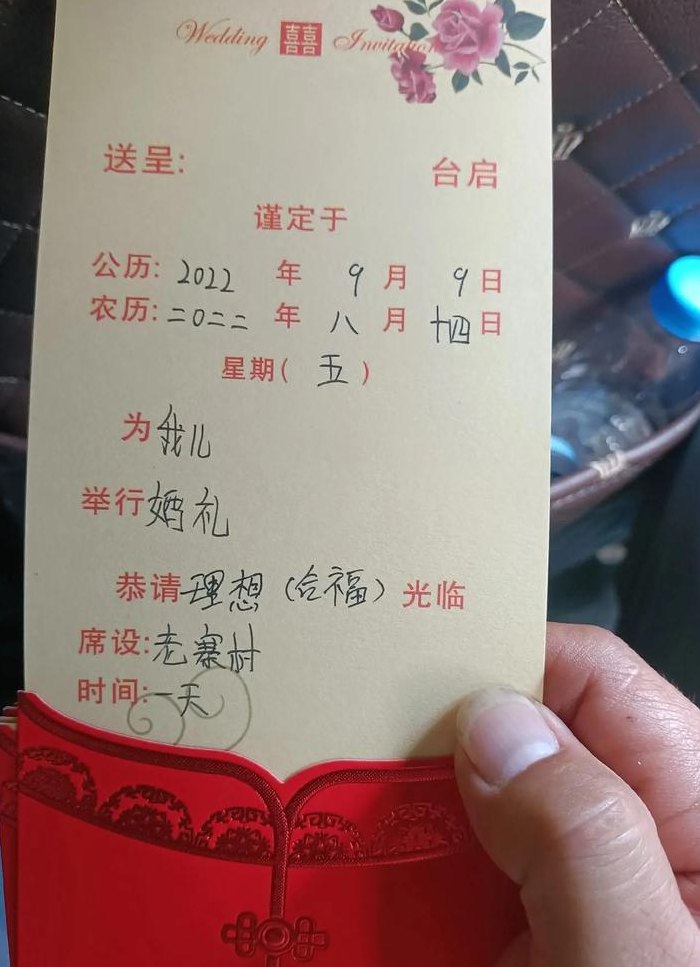 Wedding 囍 Invitation
送呈: 台启
谨定于
公历: 2022 年 9 月 9 日
农历: 二0二二 年 八 月 十四 日
星期( 五 )
为 我儿
举行 婚礼
恭请 理想 (合福) 光临
席设: 老寨村
时间: 一天